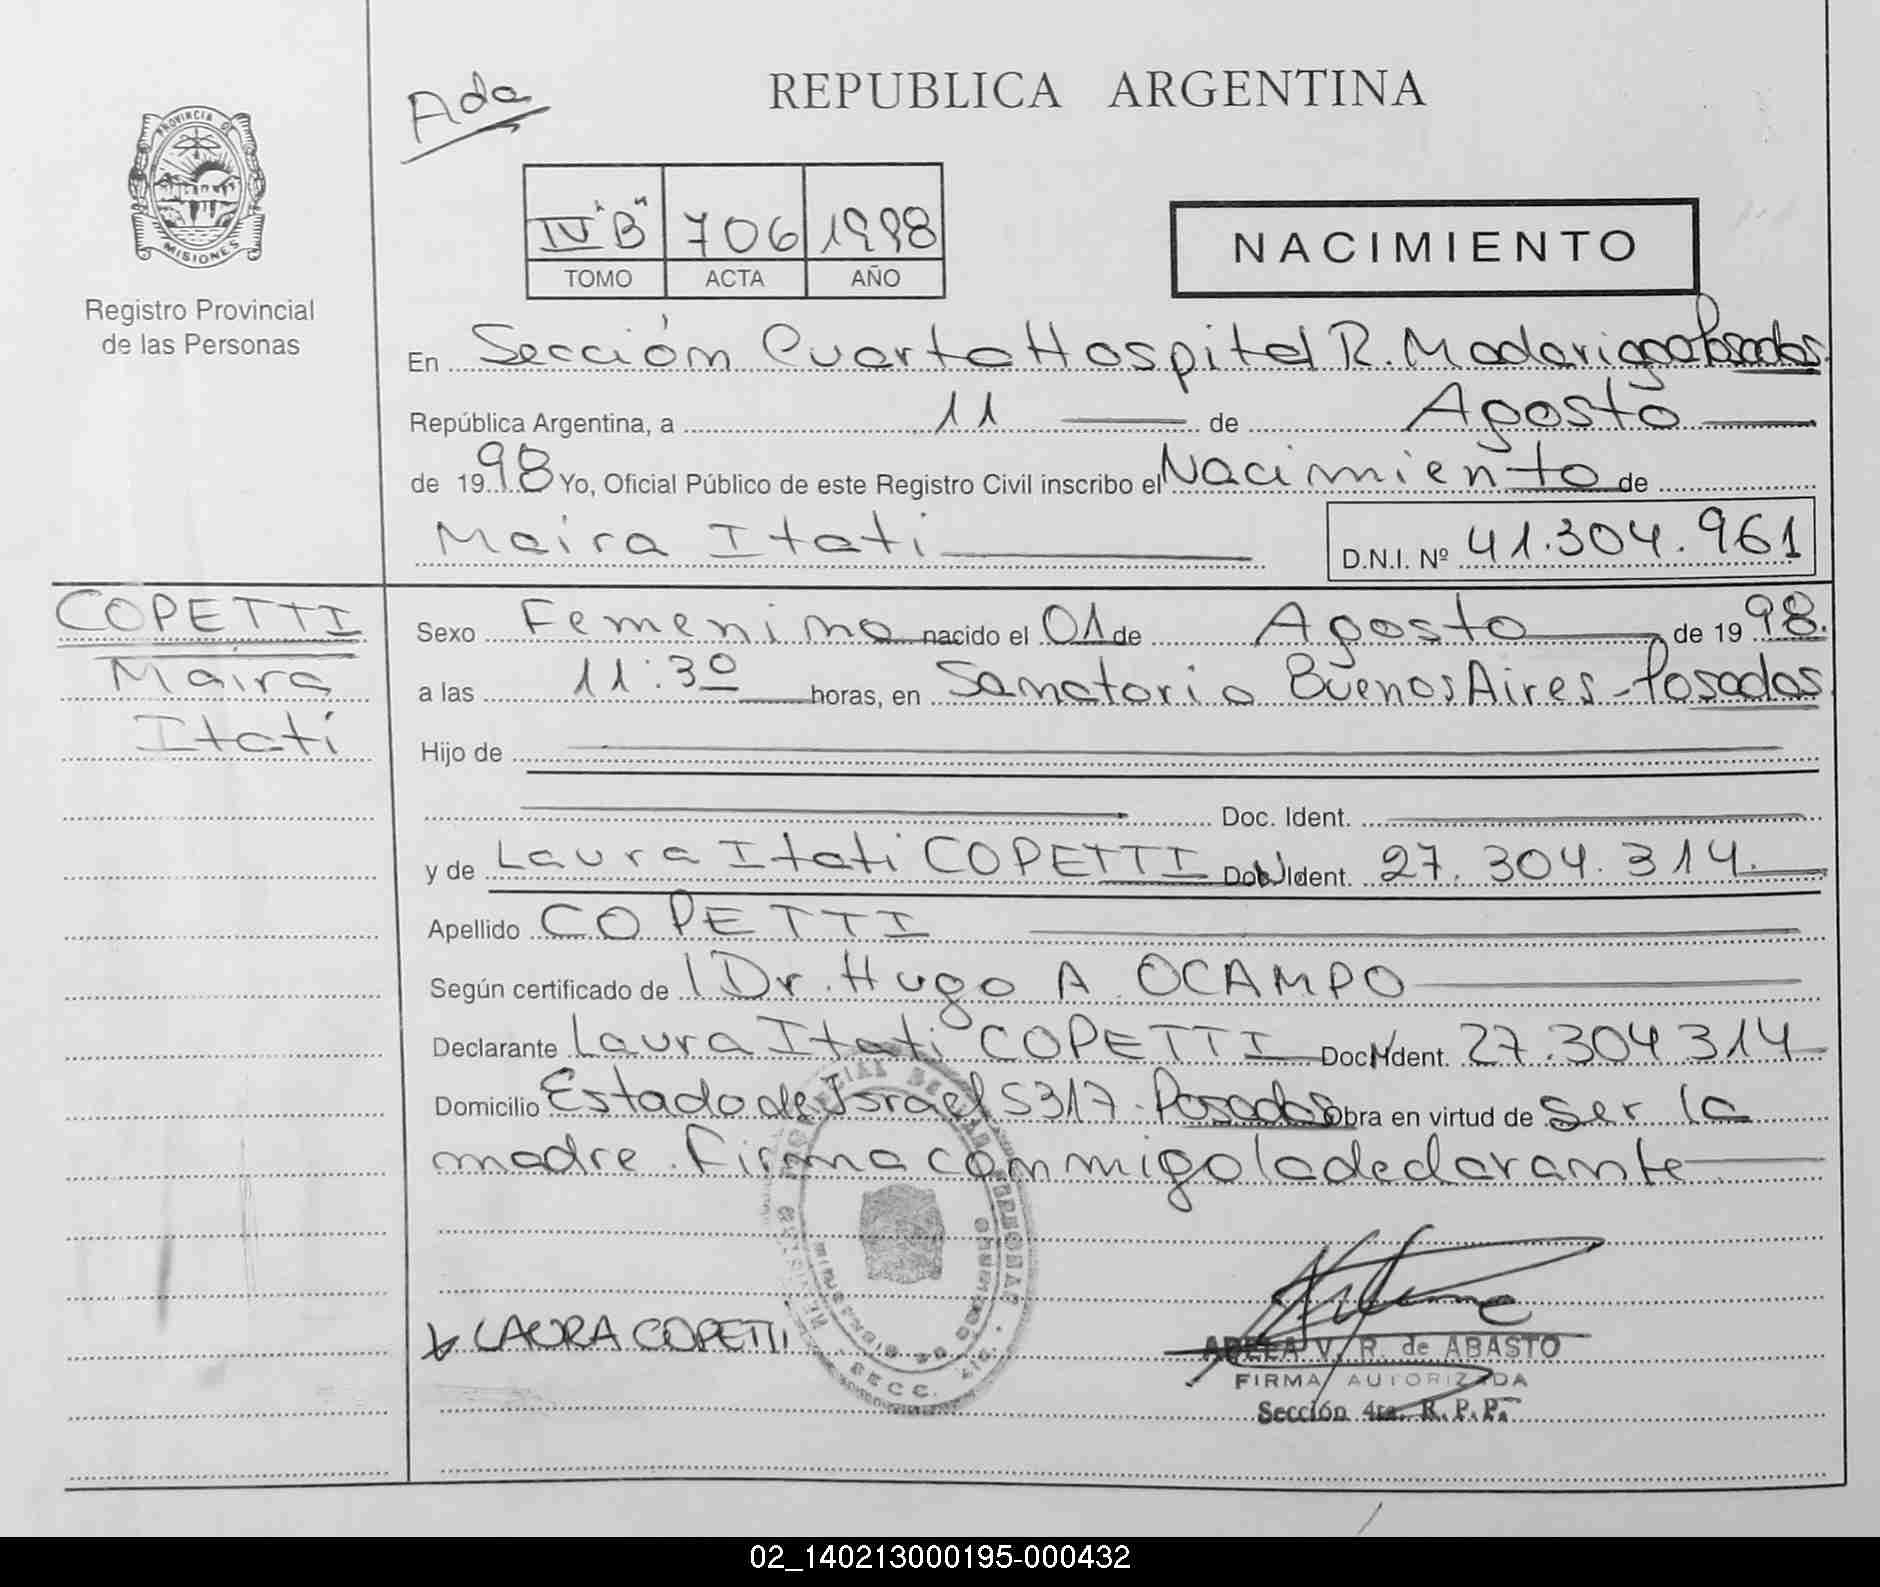 Ada
REPUBLICA ARGENTINA
PROVINCIA DE
MISIONES
Registro Provincial
de las Personas
IV "B" 706 1998
TOMO ACTA AÑO
NACIMIENTO
En Sección Cuarta Hospital R. Madariaga Posadas.
República Argentina, a 11 de Agosto
de 1998 Yo, Oficial Público de este Registro Civil inscribo el Nacimiento de
Maira Itati D.N.I. Nº 41.304.961
COPETTI
Maira
Itatí
Sexo Femenino nacido el 01 de Agosto de 1998.
a las 11:30 horas, en Sanatorio Buenos Aires - Posadas
Hijo de
Doc. Ident.
y de Laura Itati COPETTI Doc. Ident. 27.304.314.
Apellido COPETTI
Según certificado de Dr. Hugo A. OCAMPO
Declarante Laura Itati COPETTI Doc. Ident. 27.304 314
Domicilio Estado de Israel 5317 - Posadas Obra en virtud de ser la
madre. Firma conmigo la declarante
LAURA COPETTI
ADELA V. R. de ABASTO
FIRMA AUTORIZADA
Sección 4ta. R. P. P.
SECC.
02_140213000195-000432